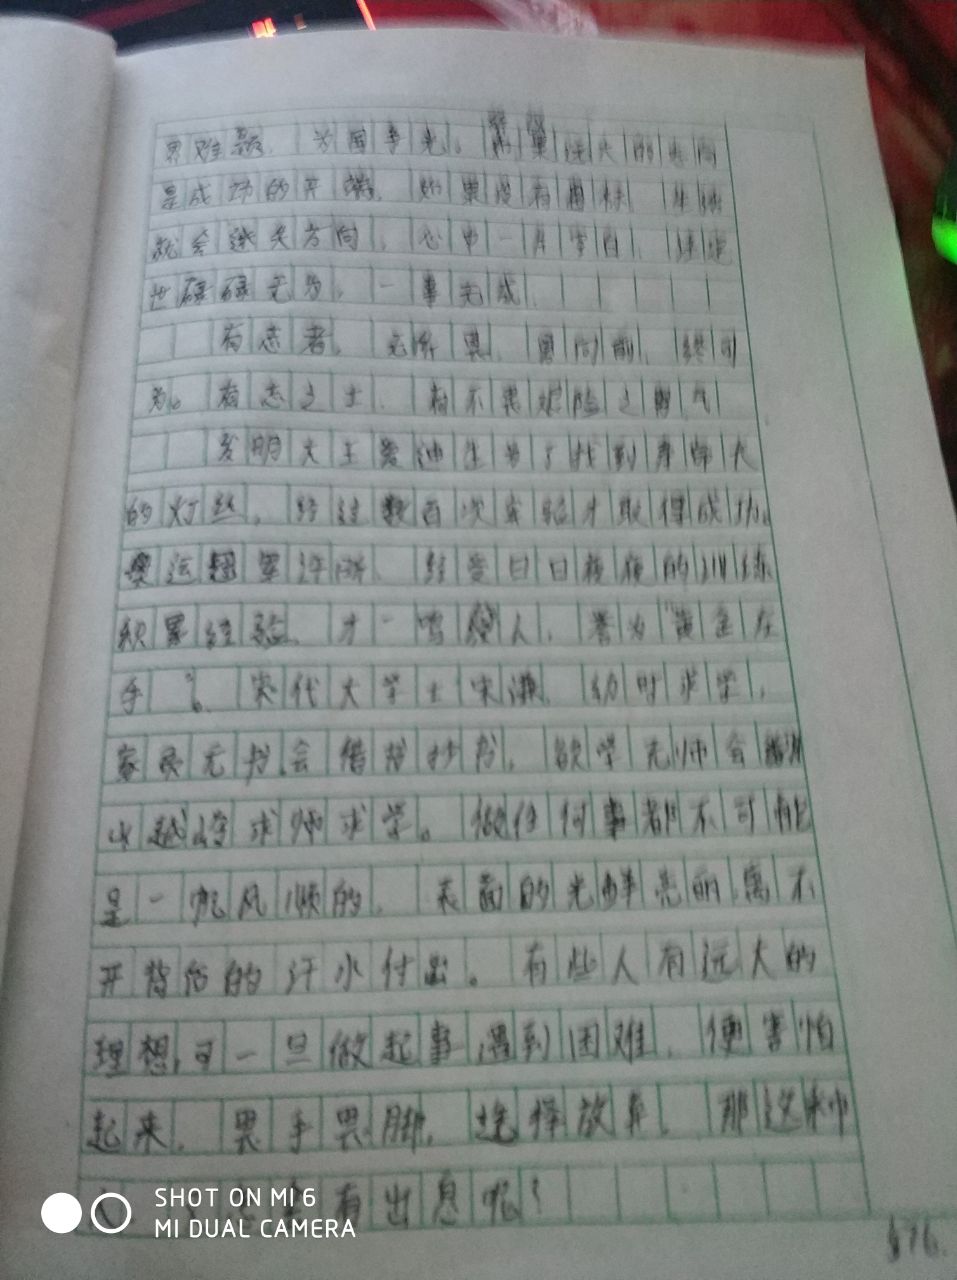 界难题，为国争光。如果远大的志向
是成功的开端，如果没有目标，
就会迷失方向，心中一片空白，
世碌碌无为，一事无成。
有志者，无所畏，勇向前，终可
为。有志之士，有不畏艰险之勇气
发明大王爱迪生为了找到
的灯丝，经过数百次实验才取得成功。
奥运冠军许昕，经受日日夜夜的训练
积累经验，才一鸣惊人，誉为“黄金左
手”。宋代大学士宋濂，幼时求学，
家贫无书会借书抄书，欲学无师会
山越岭求师求学。做任何事都不可能
是一帆风顺的，表面的光鲜亮丽离不
开背后的汗水付出。有些人有远大的
理想，可一旦做起事遇到困难，便害怕
起来，畏手畏脚，选择放弃，那这种
有出息呢？
676.
SHOT ON MI 6
MI DUAL CAMERA